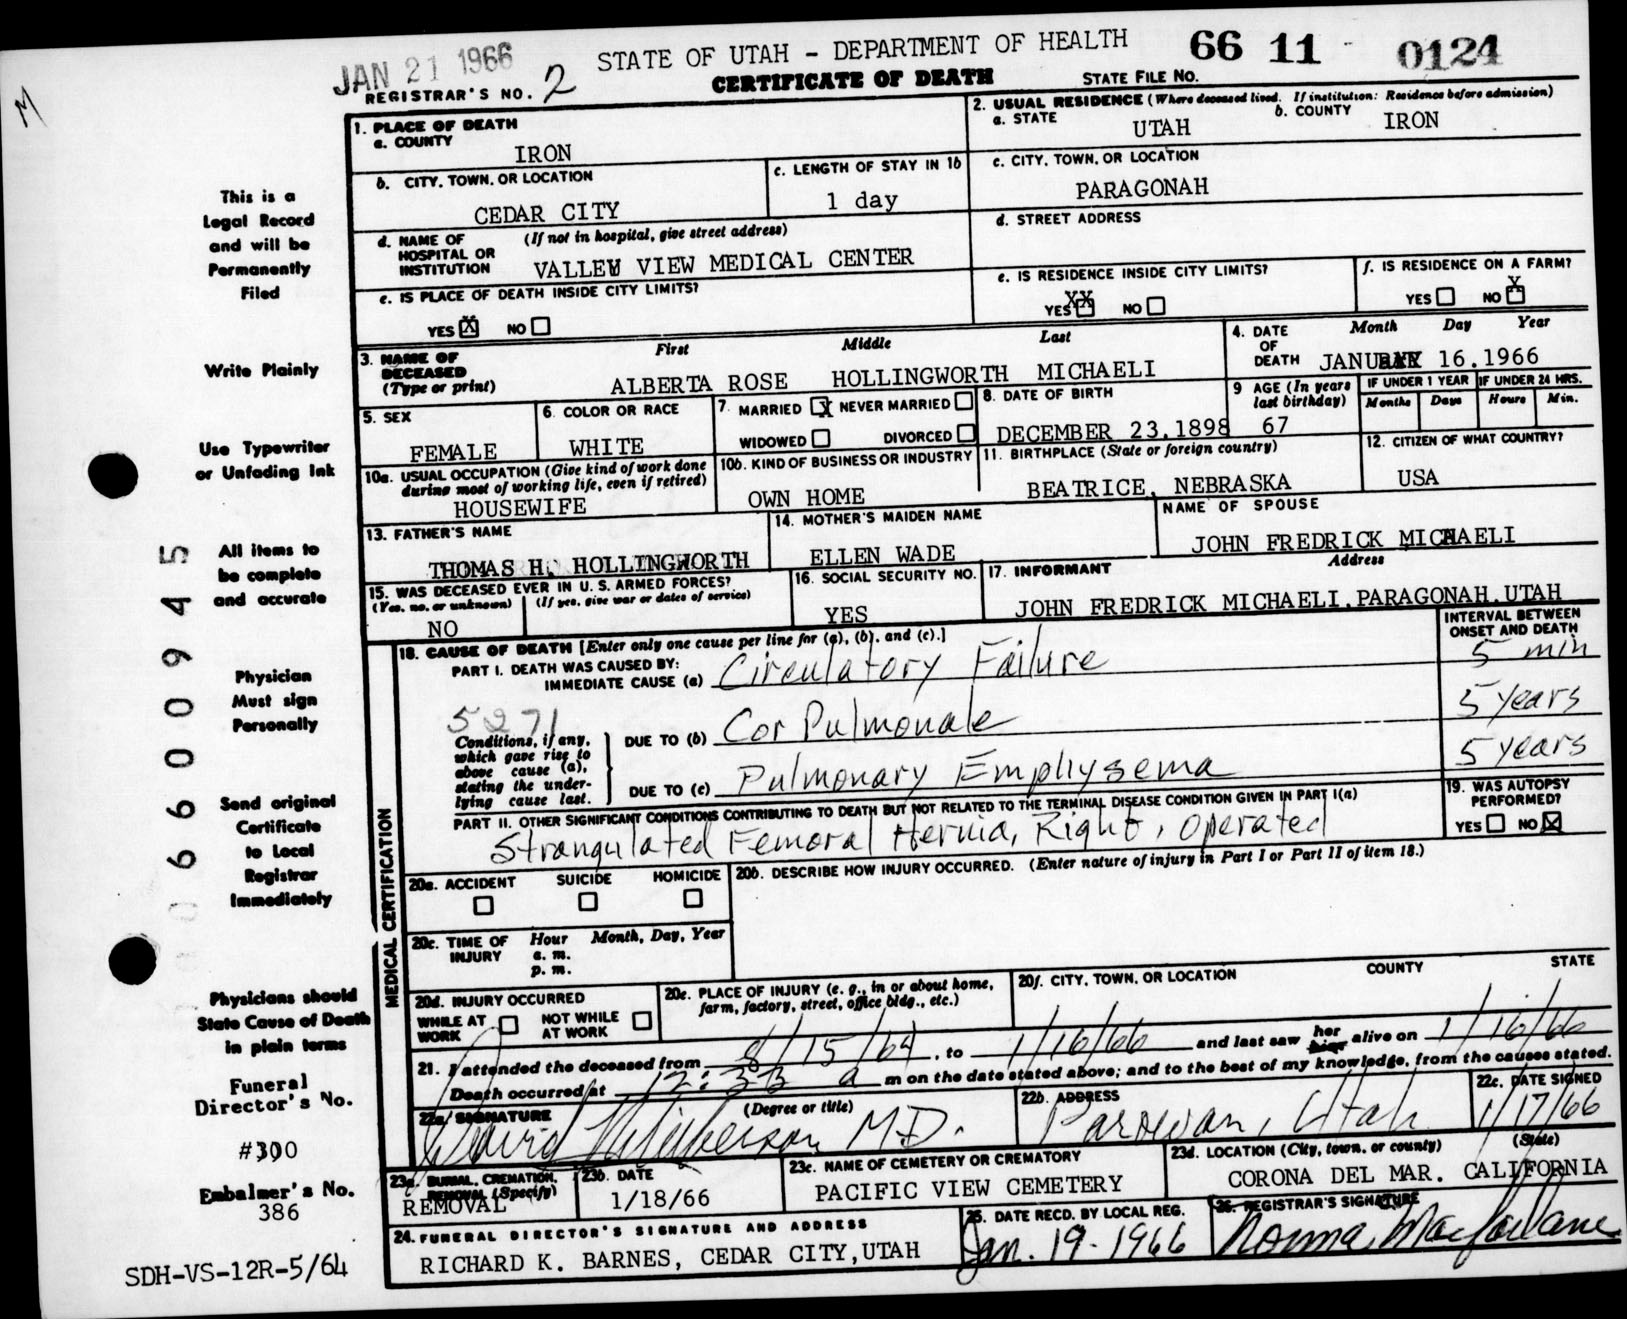 JAN 21 1966
STATE OF UTAH - DEPARTMENT OF HEALTH
66 11 0124
REGISTRAR'S NO. 2
CERTIFICATE OF DEATH
STATE FILE NO.
1. PLACE OF DEATH
a. COUNTY
IRON
2. USUAL RESIDENCE (Where deceased lived. If institution: Residence before admission)
a. STATE UTAH b. COUNTY IRON
b. CITY, TOWN, OR LOCATION
CEDAR CITY
c. LENGTH OF STAY IN 1b
1 day
c. CITY, TOWN, OR LOCATION
PARAGONAH
d. NAME OF HOSPITAL OR INSTITUTION (If not in hospital, give street address)
VALLEY VIEW MEDICAL CENTER
d. STREET ADDRESS
e. IS PLACE OF DEATH INSIDE CITY LIMITS?
YES X NO
e. IS RESIDENCE INSIDE CITY LIMITS?
YES XX NO
f. IS RESIDENCE ON A FARM?
YES NO X
3. NAME OF DECEASED (Type or print)
First Middle Last
ALBERTA ROSE HOLLINGWORTH MICHAELI
4. DATE OF DEATH Month Day Year
JANUARY 16.1966
5. SEX
FEMALE
6. COLOR OR RACE
WHITE
7. MARRIED X NEVER MARRIED
WIDOWED DIVORCED
8. DATE OF BIRTH
DECEMBER 23.1898
9 AGE (In years last birthday)
67
IF UNDER 1 YEAR IF UNDER 24 HRS.
Months Days Hours Min.
10a. USUAL OCCUPATION (Give kind of work done during most of working life, even if retired)
HOUSEWIFE
10b. KIND OF BUSINESS OR INDUSTRY
OWN HOME
11. BIRTHPLACE (State or foreign country)
BEATRICE, NEBRASKA
12. CITIZEN OF WHAT COUNTRY?
USA
13. FATHER'S NAME
THOMAS H. HOLLINGWORTH
14. MOTHER'S MAIDEN NAME
ELLEN WADE
NAME OF SPOUSE
JOHN FREDRICK MICHAELI
15. WAS DECEASED EVER IN U. S. ARMED FORCES?
(Yes, no, or unknown) (If yes, give war or dates of service)
NO
16. SOCIAL SECURITY NO.
YES
17. INFORMANT Address
JOHN FREDRICK MICHAELI, PARAGONAH, UTAH
MEDICAL CERTIFICATION
18. CAUSE OF DEATH [Enter only one cause per line for (a), (b), and (c).]
INTERVAL BETWEEN ONSET AND DEATH
PART I. DEATH WAS CAUSED BY:
IMMEDIATE CAUSE (a) Circulatory Failure 5 min
5271
Conditions, if any, which gave rise to above cause (a), stating the underlying cause last.
DUE TO (b) Cor Pulmonale 5 years
DUE TO (c) Pulmonary Emphysema 5 years
PART II. OTHER SIGNIFICANT CONDITIONS CONTRIBUTING TO DEATH BUT NOT RELATED TO THE TERMINAL DISEASE CONDITION GIVEN IN PART I(a)
Strangulated Femoral Hernia, Right, Operated
19. WAS AUTOPSY PERFORMED?
YES NO X
20a. ACCIDENT SUICIDE HOMICIDE
20b. DESCRIBE HOW INJURY OCCURRED. (Enter nature of injury in Part I or Part II of item 18.)
20c. TIME OF INJURY Hour Month, Day, Year
a. m.
p. m.
20d. INJURY OCCURRED
WHILE AT WORK NOT WHILE AT WORK
20e. PLACE OF INJURY (e. g., in or about home, farm, factory, street, office bldg., etc.)
20f. CITY, TOWN, OR LOCATION COUNTY STATE
21. I attended the deceased from 8/15/64, to 1/16/66 and last saw her him alive on 1/16/66
Death occurred at 12:33 a m on the date stated above; and to the best of my knowledge, from the causes stated.
22a. SIGNATURE (Degree or title)
M.D.
22b. ADDRESS
Parowan, Utah
22c. DATE SIGNED
1/17/66
23a. BURIAL, CREMATION, REMOVAL (Specify)
REMOVAL
23b. DATE
1/18/66
23c. NAME OF CEMETERY OR CREMATORY
PACIFIC VIEW CEMETERY
23d. LOCATION (City, town, or county) (State)
CORONA DEL MAR. CALIFORNIA
24. FUNERAL DIRECTOR'S SIGNATURE AND ADDRESS
RICHARD K. BARNES, CEDAR CITY, UTAH
25. DATE RECD. BY LOCAL REG.
Jan. 19-1966
26. REGISTRAR'S SIGNATURE
Norma Macfarlane
This is a
Legal Record
and will be
Permanently
Filed
Write Plainly
Use Typewriter
or Unfading Ink
All items to
be complete
and accurate
Physician
Must sign
Personally
Send original
Certificate
to Local
Registrar
Immediately
Physicians should
State Cause of Death
in plain terms
Funeral
Director's No.
#300
Embalmer's No.
386
SDH-VS-12R-5/64
066009445